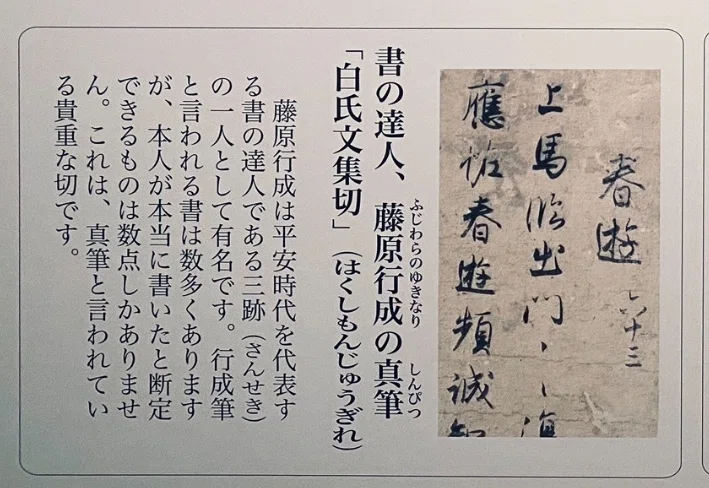 春遊
上馬臨出門
應訝春遊頻誠知
書の達人、藤原行成の真筆
ふじわらのゆきなり
しんぴつ
「白氏文集切」（はくしもんじゅうぎれ）
藤原行成は平安時代を代表す
る書の達人である三跡（さんせき）
の一人として有名です。行成筆
と言われる書は数多くあります
が、本人が本当に書いたと断定
できるものは数点しかありませ
ん。これは、真筆と言われてい
る貴重な切です。